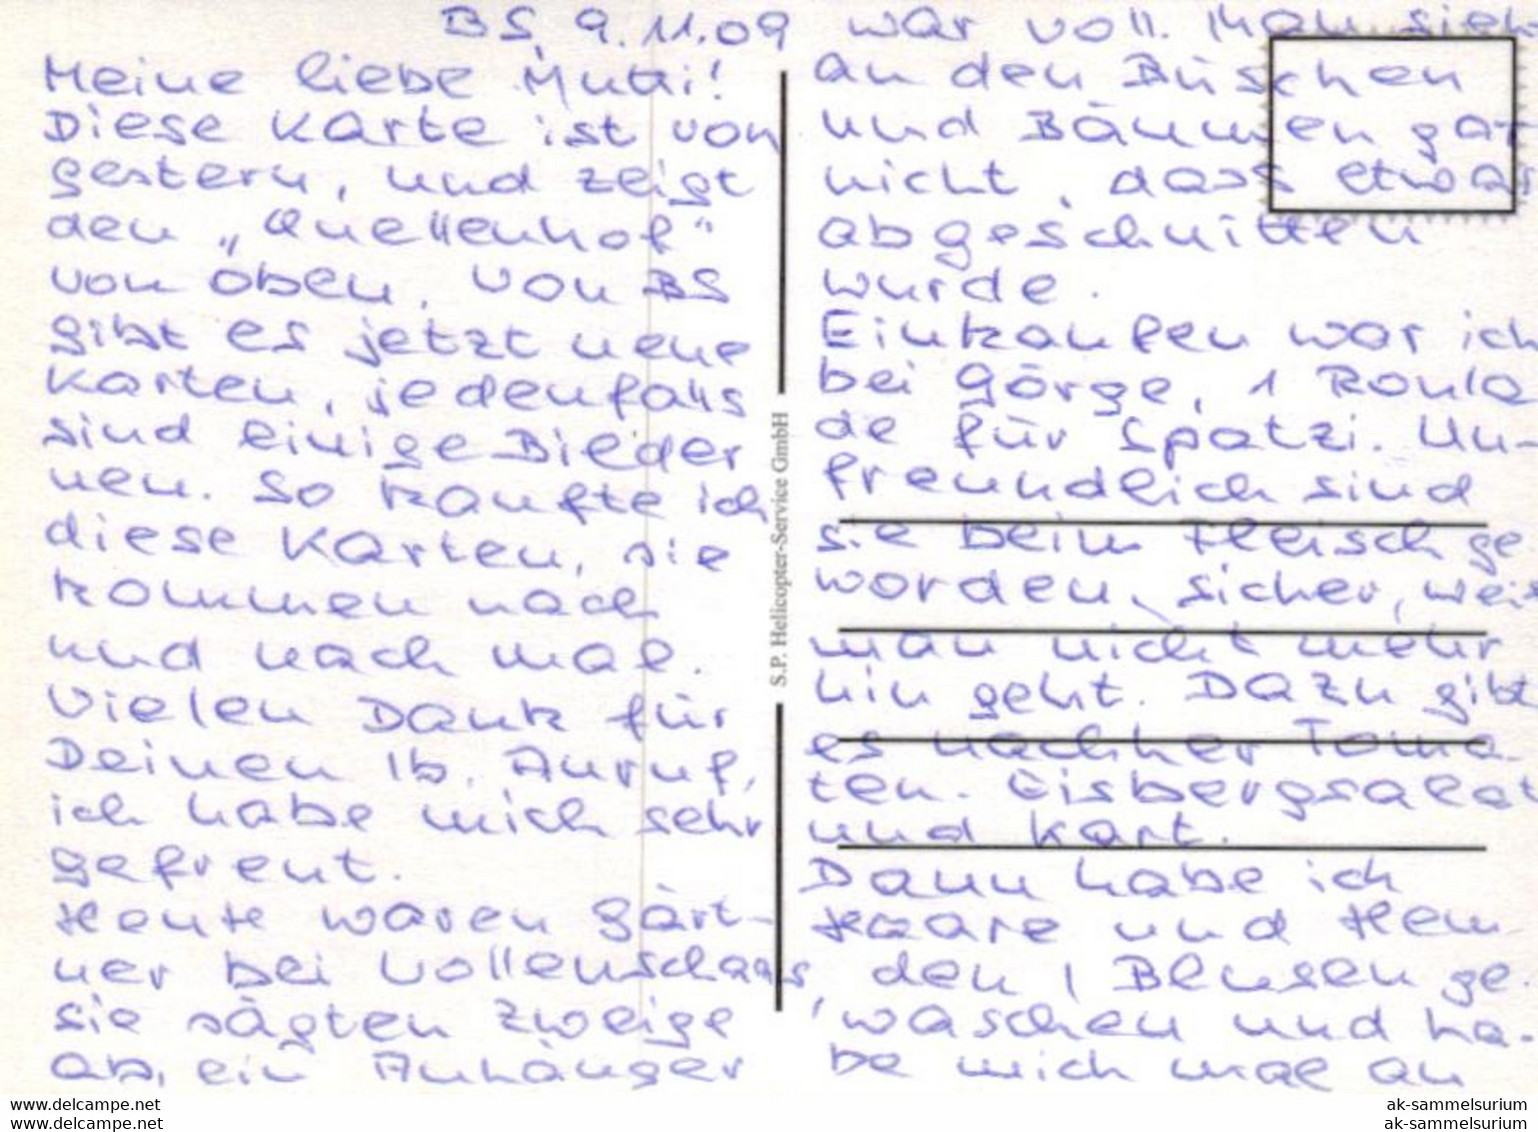 BS, 9.11.09
Meine liebe Mutti!
Diese Karte ist von
gestern, und zeigt
den „Quellenhof"
von oben. Von BS
gibt es jetzt neue
Karten, jedenfalls
sind einige Bielder
neu. So kaufte ich
diese Karten, sie
kommen nach
und nach mal.
Vielen Dank für
Deinen lb. Anruf,
ich habe mich sehr
gefreut.
Heute waren Gärt-
ner bei Vollenschaars,
sie sägten Zweige
ab, ein Anhänger
war voll. Man sieh
an den Büschen
und Bäumen gar
nicht, dass etwas
abgeschnitten
wurde.
Einkaufen war ich
bei Görge, 1 Roula
de für Spatzi. Un-
freundlich sind
sie beim Fleisch ge
worden, sicher, weil
man nicht mehr
hin geht. Dazu gibt
es nachher Toma-
ten. Eisbergsalat
und Kart.
Dann habe ich
Haare und Hem-
den, Blusen ge-
waschen und ha-
be mich mal an
S.P. Helicopter-Service GmbH
www.delcampe.net
www.delcampe.net
ak-sammelsurium
ak-sammelsurium